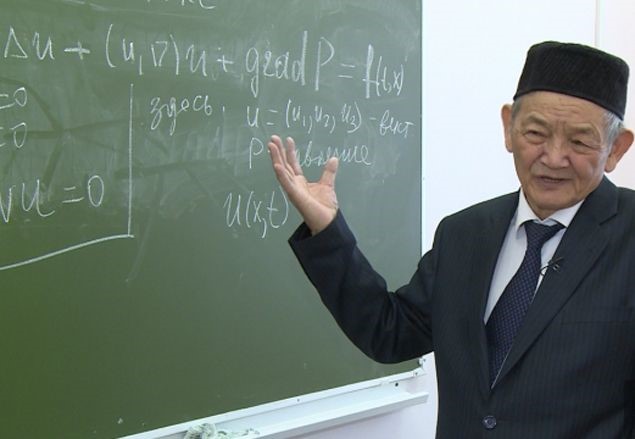 Δu + (u,∇)u + grad P = f(t,x)
=0
=0
здесь, u = (u₁, u₂, u₃) - вект
P - давление
v u = 0
u(x,t)